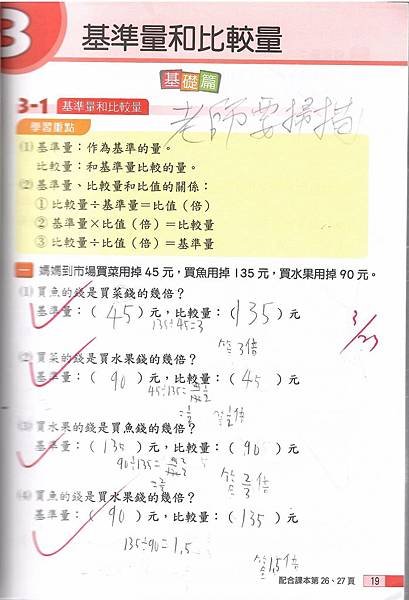 3 基準量和比較量
基礎篇
3-1 基準量和比較量
老師要掃描
學習重點
(1) 基準量：作為基準的量。
比較量：和基準量比較的量。
(2) 基準量、比較量和比值的關係：
① 比較量÷基準量＝比值（倍）
② 基準量×比值（倍）＝比較量
③ 比較量÷比值（倍）＝基準量
一 媽媽到市場買菜用掉45元，買魚用掉135元，買水果用掉90元。
(1) 買魚的錢是買菜錢的幾倍？
基準量：（ 45 ）元，比較量：（ 135 ）元
135÷45=3
答3倍
3/23
(2) 買菜的錢是買水果錢的幾倍？
基準量：（ 90 ）元，比較量：（ 45 ）元
45÷135=
=1/2 答1/2倍
(3) 買水果的錢是買魚錢的幾倍？
基準量：（ 135 ）元，比較量：（ 90 ）元
90÷135=
=2/3 答2/3倍
(4) 買魚的錢是買水果錢的幾倍？
基準量：（ 90 ）元，比較量：（ 135 ）元
135÷90=1.5
答1.5倍
配合課本第26、27頁 19